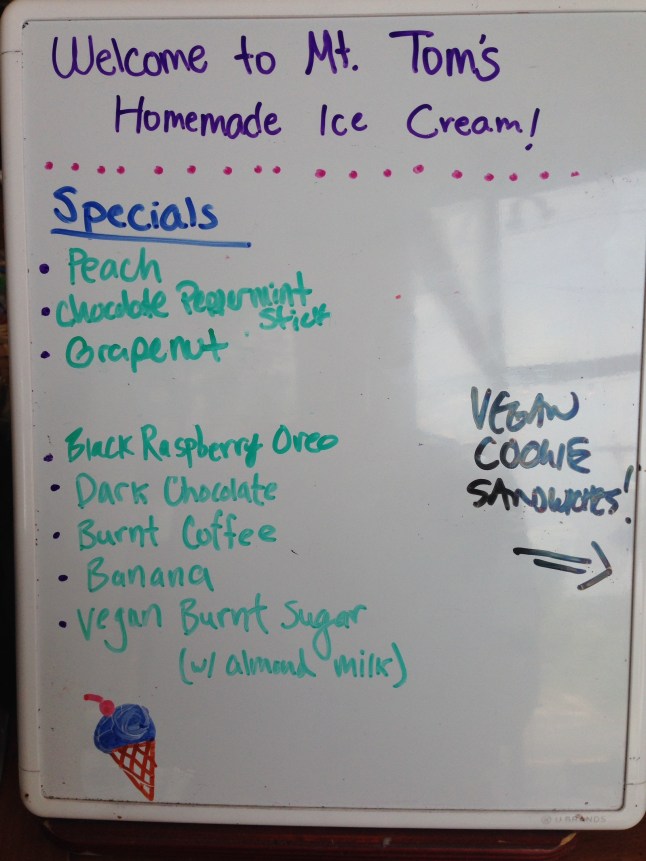 Welcome to Mt. Tom's
Homemade Ice Cream!
Specials
• Peach
• Chocolate Peppermint
Stick
• Grapenut
• Black Raspberry Oreo
• Dark Chocolate
• Burnt Coffee
• Banana
• Vegan Burnt Sugar
(w/ almond milk)
VEGAN
COOKIE
SANDWICHES!